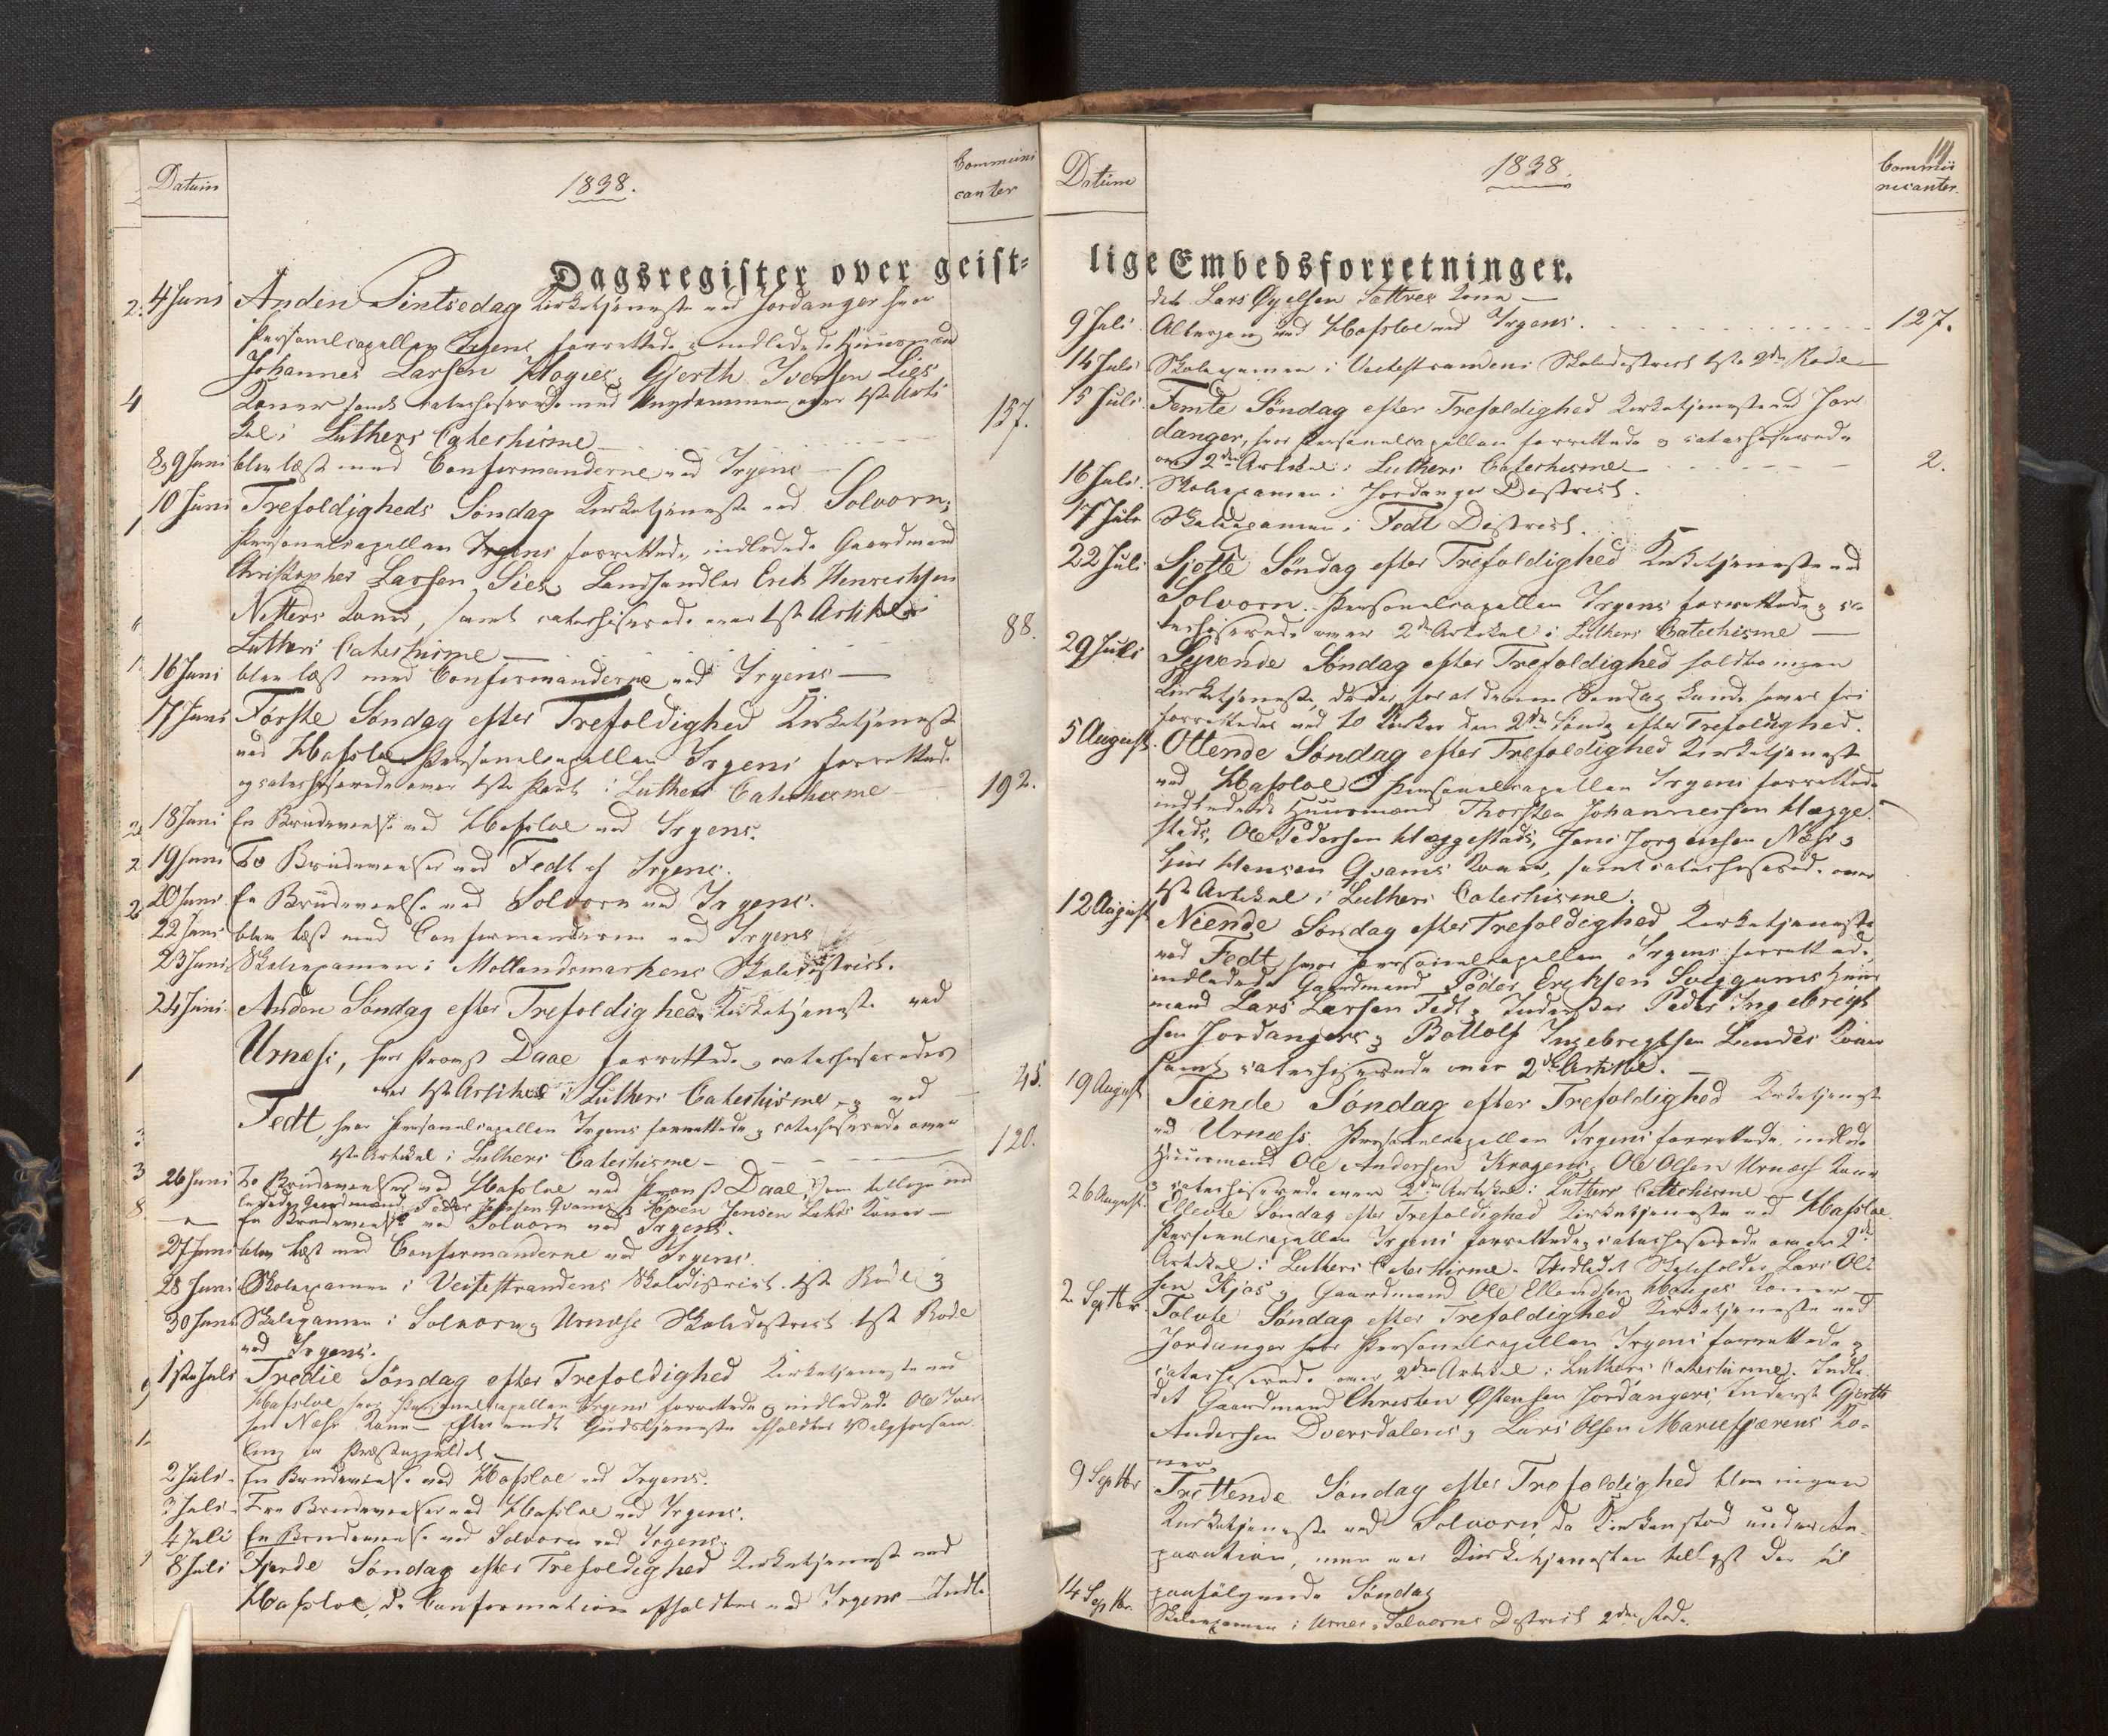 Datum
1838.
Communi
canter
Dagsregister over geist-
4 Juni Anden Pintsedag Kirketjeneste ved Jordanger hvor
Personelcapellan Irgens forrettede og indledede Huusmænd
Johannes Larsen Moges, Gjerth Iversen Lies
Koner samt catechiserede med Ungdommen over 1ste Arti
kel i Luthers Catechisme 157.
8 & 9 Juni blev læst med Confirmanderne ved Irgens
10 Juni Trefoldigheds Søndag Kirketjeneste ved Solvorn,
Personelcapellan Irgens forrettede, indledede Gaardmand
Christopher Larsen Lies, Landhandler Erik Henrichsen
Nitters Koner, samt catechiserede over 1ste Artikel i
Luthers Catechisme 88.
16 Juni blev læst med Confirmanderne ved Irgens
17 Juni Første Søndag efter Trefoldighed Kirketjeneste
ved Hafsloe Personelcapellan Irgens forrettede
og catechiserede over 1ste Part i Luthers Catechisme 192.
18 Juni En Brudevielse ved Hafsloe ved Irgens.
19 Juni To Brudevielser ved Fedt af Irgens.
20 Juni En Brudevielse ved Solvorn ved Irgens.
22 Juni blev læst med Confirmanderne ved Irgens
23 Juni Skolexamen i Mollandsmarkens Skoledistrict.
24 Juni Anden Søndag efter Trefoldighed Kirketjeneste ved
Urnæss, hvor Provst Daae forrettede og catechiserede
over 1ste Artikel i Luthers Catechisme og ved 45.
Fedt, hvor Personelcapellan Irgens forrettede og catechiserede over
1ste Artikel i Luthers Catechisme 120.
26 Juni To Brudevielser ved Hafsloe ved Provst Daae, som tillige ind
ledede Gaardmænd Peder Jensen Qvams & Søren Jensen Koner
En Brudevielse ved Solvorn ved Irgens.
27 Juni blev læst med Confirmanderne ved Irgens.
28 Juni Skolexamen i Veitestrandens Skoledistrict 1ste Rode og
30 Juni Skolexamen i Solvorn og Urnæss Skoledistrict 1ste Rode
ved Irgens.
1ste Juli Tredie Søndag efter Trefoldighed Kirketjeneste ved
Hafsloe hvor Personelcapellan Irgens forrettede og indledede Ole Iver
sen Næss Kone - Efter endt Gudstjeneste afholdtes Valgforsam
ling for Præstegjeldet
2 Juli En Brudevielse ved Hafsloe ved Irgens.
3 Juli Tre Brudevielser ved Hafsloe ved Irgens.
4 Juli En Brudevielse ved Solvorn ved Irgens.
8 Juli Fjerde Søndag efter Trefoldighed Kirketjeneste ved
Hafsloe, da Confirmation afholdtes ved Irgens - Indle
Datum
1838.
Commu
nicanter.
lige Embedsforretninger.
det Lars Øyelsen Sættres Kone
9 Juli Altergang ved Hafsloe ved Irgens. 127.
14 Juli Skolexamen i Veitestrandens Skoledistrict 2den Rode
15 Juli Femte Søndag efter Trefoldighed Kirketjeneste ved Jor
danger, hvor Personelcapellan forrettede og catechiserede
over 2den Artikel i Luthers Catechisme 2.
16 Juli Skolexamen i Jordanger District.
17 Juli Skolexamen i Fedt District.
22 Juli Sjette Søndag efter Trefoldighed Kirketjeneste ved
Solvorn. Personelcapellan Irgens forrettede og ca
techiserede over 2den Artikel i Luthers Catechisme
29 Juli Syvende Søndag efter Trefoldighed holdtes ingen
Kirketjeneste, for at denne Søndag kunde være fri
forrettedes ved to Kirker den 2den Søndag efter Trefoldighed.
5 August Ottende Søndag efter Trefoldighed Kirketjeneste
ved Hafsloe Personelcapellan Irgens forrettede
indledede Huusmand Thorsten Johannessen Hægge
stads, Ole Pedersen Hæggestads, Jens Jørgensen Næss og
Hansen Qvams Koner, samt catechiserede over
1ste Artikel i Luthers Catechisme.
12 August Niende Søndag efter Trefoldighed Kirketjeneste
ved Fedt hvor Personelcapellan Irgens forrettede
indledede Gaardmand Peder Eriksen Svæggums Huus
mand Lars Larsen Fedt, Inderster Peder Ingebrigt
sen Jordangers og Bottolf Ingebrigtsen Lundes Koner
samt catechiserede over 2den Artikel.
19 August Tiende Søndag efter Trefoldighed Kirketjeneste
ved Urnæss. Personelcapellan Irgens forrettede, indlede
Huusmand Ole Andersen Kragens, Ole Olsen Urnæss Koner
og catechiserede over 2den Artikel i Luthers Catechisme
26 August Ellevte Søndag efter Trefoldighed Kirketjeneste ved Hafsloe.
Personelcapellan Irgens forrettede og catechiserede over 2den
Artikel i Luthers Catechisme. Indledet Skoleholder Lars Ol
sen Kjøs og Gaardmand Ole Ellendsen Hauges Koner
2 Septbr Tolvte Søndag efter Trefoldighed Kirketjeneste ved
Jordanger hvor Personelcapellan Irgens forrettede og
catechiserede over 2den Artikel i Luthers Catechisme. Indle
det Gaardmand Christen Østensen Jordangers, Inderst Gjerth
Andersen Dversdalens og Lars Olsen Mariefjærens Ko-
ner.
9 Septbr Trettende Søndag efter Trefoldighed blev ingen
Kirketjeneste ved Solvorn, da Kirken stod under Re
paration, men var Kirketjenesten tillyst der til
paafølgende Søndag
14 Septbr. Skolexamen i Urnes & Solvorns District 2den Rode.